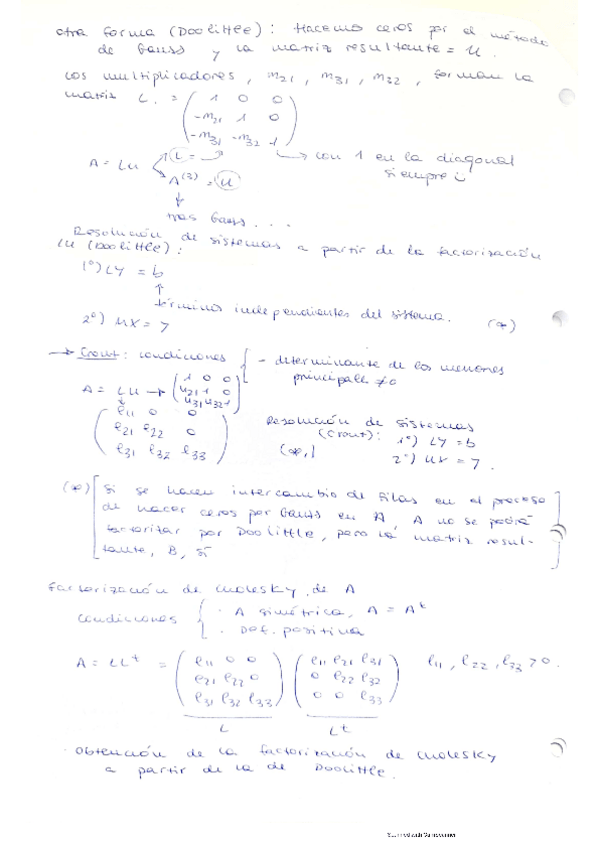 otra forma (Doolittle): Hacemos ceros por el método
de Gauss y la matriz resultante = U.
Los multiplicadores, m21, m31, m32, forman la
matriz L. = ( 1 0 0
-m21 1 0
-m31 -m32 1 )
→ con 1 en la diagonal
siempre
A = LU
L = →
A(3) = U
↓
tras Gauss...
Resolución de sistemas a partir de la factorización
LU (Doolittle):
1º) LY = b
↑
términos independientes del sistema.
2º) UX = Y (*)
→ Crout: condiciones { - determinante de los menores
principales ≠ 0
A = LU → ( 1 0 0
u21 1 0
u31 u32 1 )
( l11 0 0
l21 l22 0
l31 l32 l33 )
Resolución de sistemas
(Crout): 1º) LY = b
(*) 2º) UX = Y.
(*) [ Si se hacen intercambio de filas en el proceso
de hacer ceros por Gauss en A, A no se podrá
factorizar por Doolittle, pero la matriz resul-
tante, B, sí ]
Factorización de Cholesky de A
condiciones { · A simétrica, A = At
· Def. positiva
A = LLt = ( l11 0 0
l21 l22 0
l31 l32 l33 ) ( l11 l21 l31
0 l22 l32
0 0 l33 ) l11, l22, l33 > 0.
L Lt
· Obtención de la factorización de Cholesky
a partir de la de Doolittle.